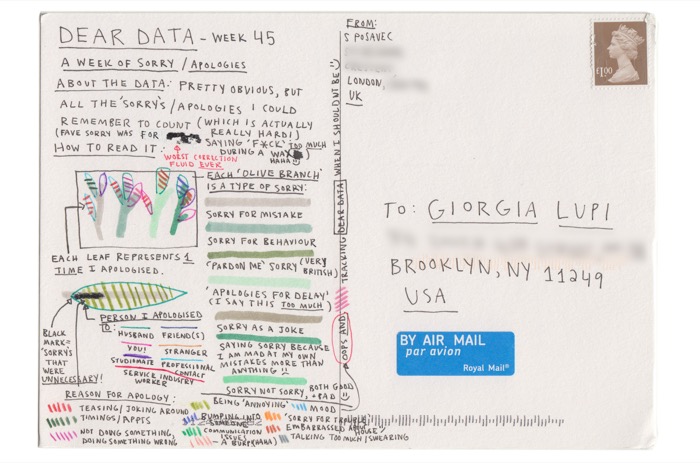 DEAR DATA - WEEK 45
A WEEK OF SORRY / APOLOGIES
ABOUT THE DATA: PRETTY OBVIOUS, BUT
ALL THE 'SORRY'S / APOLOGIES I COULD
REMEMBER TO COUNT (WHICH IS ACTUALLY
REALLY HARD!)
(FAVE SORRY WAS FOR
SAYING 'F*CK' TOO MUCH
DURING A WAX
HAHA)
WORST CORRECTION
FLUID EVER
HOW TO READ IT:
EACH 'OLIVE BRANCH'
IS A TYPE OF SORRY:
SORRY FOR MISTAKE
SORRY FOR BEHAVIOUR
'PARDON ME' SORRY (VERY
BRITISH)
'APOLOGIES FOR DELAY'
(I SAY THIS TOO MUCH)
SORRY AS A JOKE
SAYING SORRY BECAUSE
I AM MAD AT MY OWN
MISTAKES MORE THAN
ANYTHING
SORRY NOT SORRY, BOTH GOOD
+ BAD
EACH LEAF REPRESENTS 1
TIME I APOLOGISED.
BLACK
MARK =
'SORRY'S
THAT
WERE
UNNECESSARY!
PERSON I APOLOGISED
TO:
HUSBAND
FRIEND(S)
YOU!
STRANGER
STUDIOMATE
PROFESSIONAL
CONTACT
SERVICE INDUSTRY
WORKER
REASON FOR APOLOGY:
TEASING / JOKING AROUND
TIMINGS / APPTS
NOT DOING SOMETHING,
DOING SOMETHING WRONG
BEING 'ANNOYING'
BUMPING INTO
SOMEONE
COMMUNICATION
ISSUES
A BURP (HAHA)
MOOD
'SORRY FOR TROUBLE'
EMBARRASSED
HOUSE'
TALKING TOO MUCH / SWEARING
OOPS AND, TRACKING DEAR DATA WHEN I SHOULDN'T BE
FROM:
S POSAVEC
LONDON,
UK
£1.00
TO: GIORGIA LUPI
BROOKLYN, NY 11249
USA
BY AIR MAIL
par avion
Royal Mail®